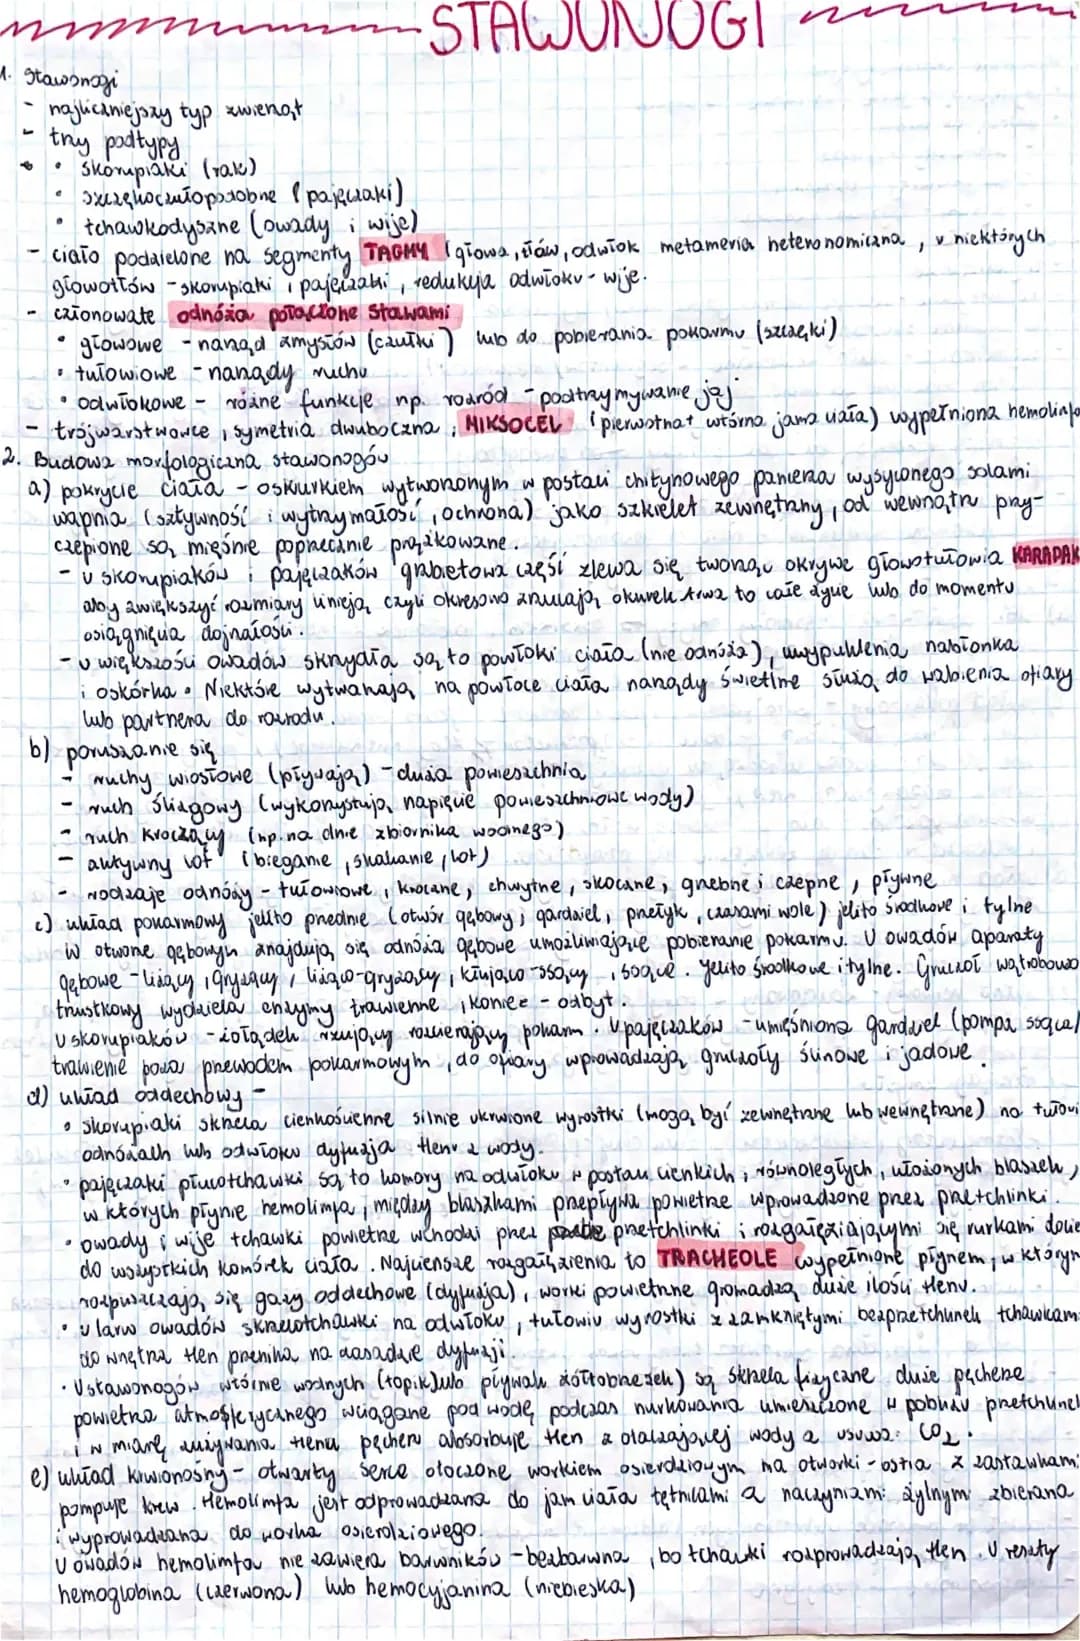 STAWONOGI
1. Stawonogi
- najliczniejszy typ zwierząt
- trzy podtypy
• skorupiaki (rak)
• szczękoczułopodobne (pajęczaki)
• tchawkodyszne (owady i wije)
- ciało podzielone na segmenty TAGMY (głowa, tłów, odwłok metameria heteronomiczna, u niektórych
głowotłów - skorupiaki i pajęczaki, redukcja odwłoku - wije.
- członowate odnóża połączone stawami
• głowowe - narząd zmysłów (czułki) lub do pobierania pokarmu (szczęki)
• tułowiowe - narządy ruchu
• odwłokowe - różne funkcje np. rozród - podtrzymywanie jaj
- trójwarstwowce, symetria dwuboczna, MIKSOCEL (pierwotna + wtórna jama ciała) wypełniona hemolinfo
2. Budowa morfologiczna stawonogów
a) pokrycie ciała - oskórkiem wytworzonym w postaci chitynowego pancerza wysyconego solami
wapnia (sztywność i wytrzymałość, ochrona) jako szkielet zewnętrzny, od wewnątrz przy-
czepione są mięśnie poprzecznie prążkowane.
- u skorupiaków i pajęczaków grzbietowa część zlewa się tworząc okrywę głowotułowia KARAPAK
aby zwiększyć rozmiary linieją czyli okresowo zrzucają oskórek trwa to całe życie lub do momentu
osiągnięcia dojrzałości.
- u większości owadów skrzydła są to powłoki ciała (nie odnóża), uwypuklenia nabłonka
i oskórka. Niektóre wytwarzają na powłoce ciała narządy świetlne służą do wabienia ofiary
lub partnera do rozrodu.
b) poruszanie się
- ruchy wiosłowe (pływają) - duża powierzchnia
- ruch ślizgowy (wykorzystują napięcie powierzchniowe wody)
- ruch kroczący (np. na dnie zbiornika wodnego)
- aktywny lot (bieganie, skakanie, lot)
- rodzaje odnóży - tułowiowe, kroczne, chwytne, skoczne, grzebne i czepne, pływne
c) układ pokarmowy jelito przednie (otwór gębowy, gardziel, przełyk, czasami wole) jelito środkowe i tylne
W otworze gębowym znajdują się odnóża gębowe umożliwiające pobieranie pokarmu. U owadów aparaty
gębowe - liżący, gryzący, liżąco-gryzący, kłująco-ssący, ssące. Jelito środkowe i tylne. Gruczoł wątrobowo
trzustkowy wydziela enzymy trawienne, koniec - odbyt.
U skorupiaków - żołądek żujący rozcierający pokarm. U pajęczaków - umięśniona gardziel (pompa ssąca)
trawienie poza przewodem pokarmowym, do ofiary wprowadzają gruczoły ślinowe i jadowe.
d) układ oddechowy -
• skorupiaki skrzela cienkościenne silnie ukrwione wyrostki (mogą być zewnętrzne lub wewnętrzne) na tułowi
odnóżach lub odwłoku dyfuzja tlenu z wody.
• pajęczaki płucotchawki są to komory na odwłoku w postaci cienkich, równoległych, ułożonych blaszek,
w których płynie hemolimfa, między blaszkami przepływa powietrze wprowadzone przez przetchlinki.
• owady i wije tchawki powietrze wchodzi przez przetchlinki i rozgałęziającymi się rurkami docie
do wszystkich komórek ciała. Najcieńsze rozgałęzienia to TRACHEOLE wypełnione płynem, w którym
rozpuszczają się gazy oddechowe (dyfuzja), worki powietrzne gromadzą duże ilości tlenu.
• u larw owadów skrzelotchawki na odwłoku, tułowiu wyrostki z zamkniętymi bezprzetchlinek tchawkami
do wnętrza tlen przenika na zasadzie dyfuzji.
• U stawonogów wtórnie wodnych (topik) lub pływak żółtobrzeżek) są skrzela fizyczne duże pęcherze
powietrza atmosferycznego wciągane pod wodę podczas nurkowania umieszczone w pobliżu przetchlinek
i w miarę zużywania tlenu pęcherz absorbuje tlen z otaczającej wody a usuwa CO₂.
e) układ krwionośny - otwarty serce otoczone workiem osierdziowym ma otworki - ostia z zastawkami
pompuje krew. Hemolimfa jest odprowadzana do jam ciała tętnicami a naczyniami żylnymi zbierana
i wyprowadzana do worka osierdziowego.
U owadów hemolimfa nie zawiera barwników - bezbarwna, bo tchawki rozprowadzają tlen. U reszty
hemoglobina (czerwona) lub hemocyjanina (niebieska)